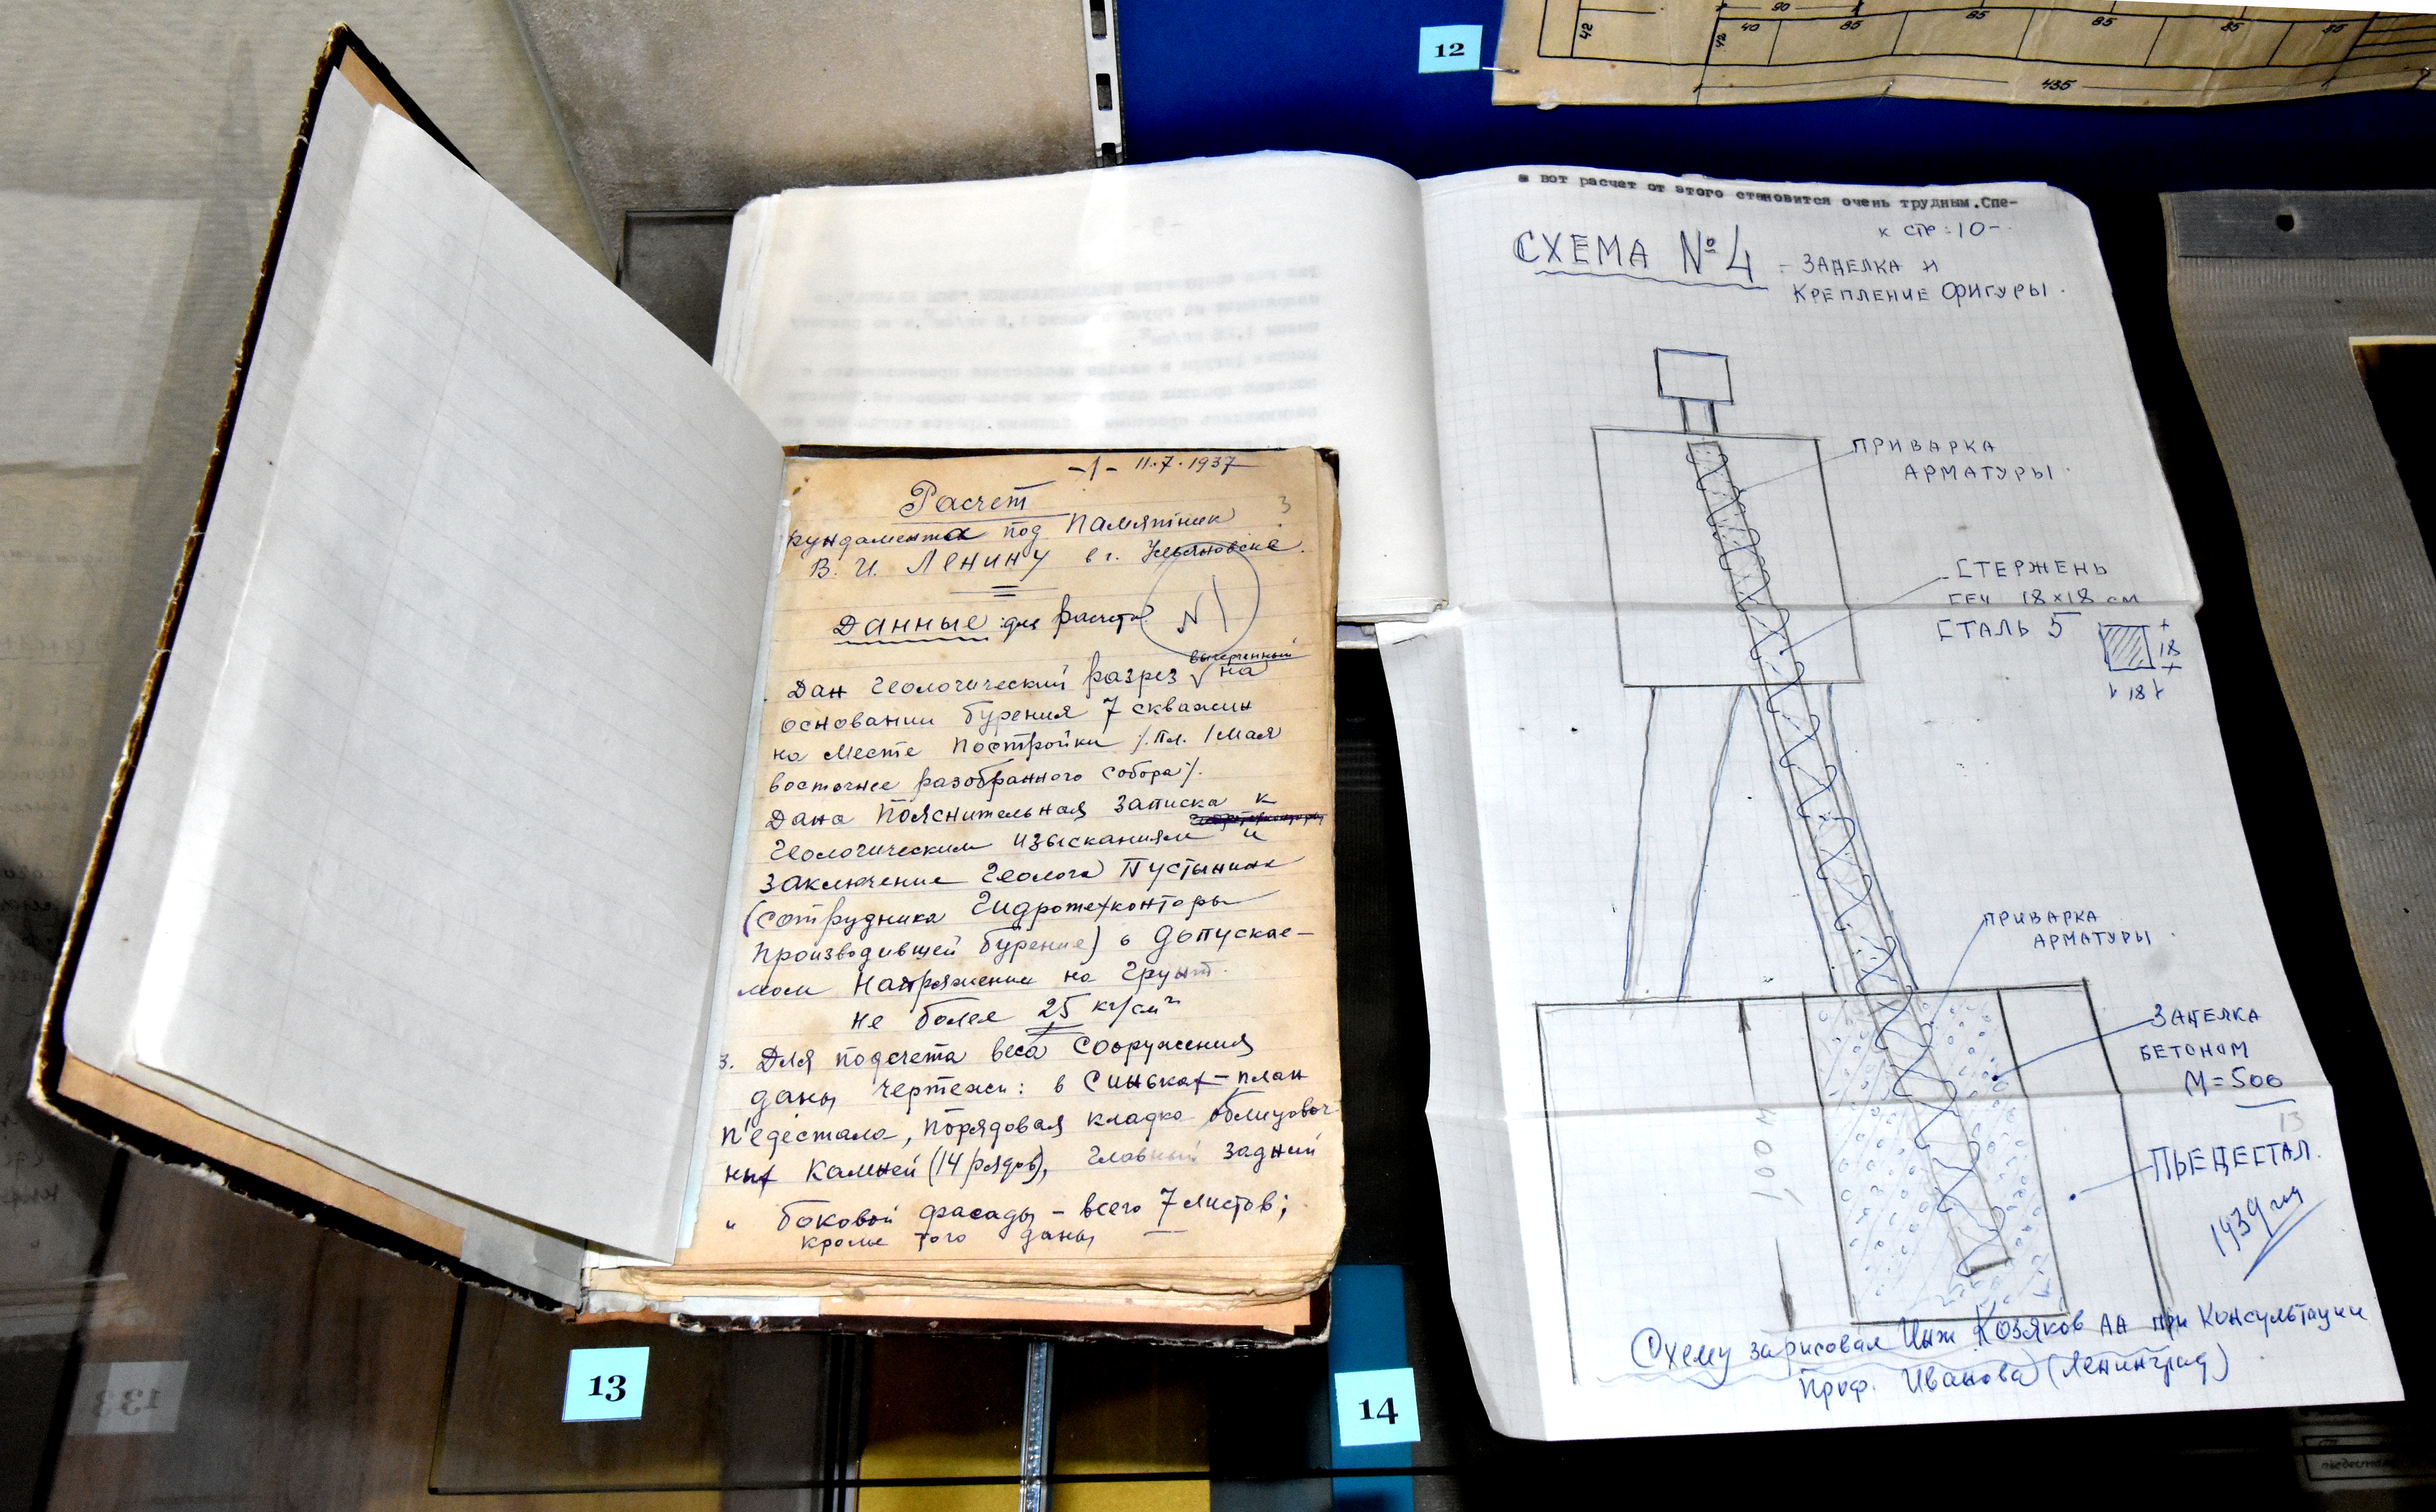 12
90
42
42
40
85
85
85
85
435
-1- 11.7.1937
3
Расчет
фундамента под Памятник
В. И. Ленину в г. Ульяновске.
Данные для расчета
N 1
вычерченный
Дан Геологический разрез на
основании бурения 7 скважин
на месте постройки /. пл. 1 мая
восточнее разобранного собора /.
Дана Пояснительная записка к
Геологическим изысканиям и
Заключение Геолога Пустынник
(сотрудника Гидротехконторы
производившей бурение) о допускае-
мом Напряжении на Грунт.
не более 25 кг/см²
3. Для подсчета веса сооружения
даны чертежи: в синьках-план
п'едестала, порядовая кладка облицовоч
ных камней (14 рядов), Главный задний
" боковой фасады - всего 7 листов;
кроме того даны
а вот расчет от этого становится очень трудным. Спе-
к стр: 10-
СХЕМА № 4 - ЗАДЕЛКА И
КРЕПЛЕНИЕ ФИГУРЫ.
ПРИВАРКА
АРМАТУРЫ.
СТЕРЖЕНЬ
СЕЧ 18×18 см
СТАЛЬ 5
18
18
ПРИВАРКА
АРМАТУРЫ.
ЗАДЕЛКА
БЕТОНОМ
М=500
13
ПЬЕДЕСТАЛ.
1939 год
Схему зарисовал Инж. Козяков АА при Консультации
Проф. Иванова (Ленинград)
13
14